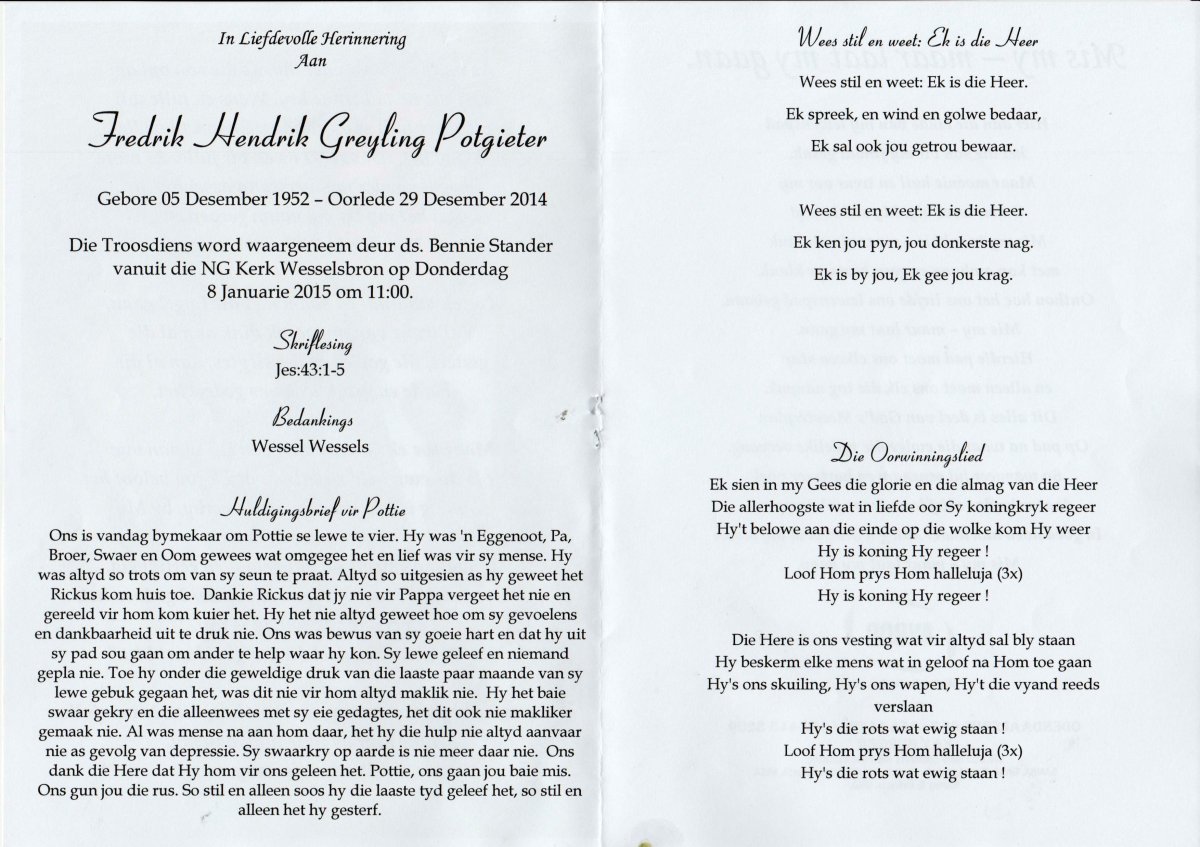 In Liefdevolle Herinnering
Aan
Fredrik Hendrik Greyling Potgieter
Gebore 05 Desember 1952 – Oorlede 29 Desember 2014
Die Troosdiens word waargeneem deur ds. Bennie Stander
vanuit die NG Kerk Wesselsbron op Donderdag
8 Januarie 2015 om 11:00.
Skriflesing
Jes:43:1-5
Bedankings
Wessel Wessels
Huldigingsbrief vir Pottie
Ons is vandag bymekaar om Pottie se lewe te vier. Hy was 'n Eggenoot, Pa,
Broer, Swaer en Oom gewees wat omgegee het en lief was vir sy mense. Hy
was altyd so trots om van sy seun te praat. Altyd so uitgesien as hy geweet het
Rickus kom huis toe.  Dankie Rickus dat jy nie vir Pappa vergeet het nie en
gereeld vir hom kom kuier het. Hy het nie altyd geweet hoe om sy gevoelens
en dankbaarheid uit te druk nie. Ons was bewus van sy goeie hart en dat hy uit
sy pad sou gaan om ander te help waar hy kon. Sy lewe geleef en niemand
gepla nie. Toe hy onder die geweldige druk van die laaste paar maande van sy
lewe gebuk gegaan het, was dit nie vir hom altyd maklik nie.  Hy het baie
swaar gekry en die alleenwees met sy eie gedagtes, het dit ook nie makliker
gemaak nie. Al was mense na aan hom daar, het hy die hulp nie altyd aanvaar
nie as gevolg van depressie. Sy swaarkry op aarde is nie meer daar nie.  Ons
dank die Here dat Hy hom vir ons geleen het. Pottie, ons gaan jou baie mis.
Ons gun jou die rus. So stil en alleen soos hy die laaste tyd geleef het, so stil en
alleen het hy gesterf.
Wees stil en weet: Ek is die Heer
Wees stil en weet: Ek is die Heer.
Ek spreek, en wind en golwe bedaar,
Ek sal ook jou getrou bewaar.
Wees stil en weet: Ek is die Heer.
Ek ken jou pyn, jou donkerste nag.
Ek is by jou, Ek gee jou krag.
Die Oorwinningslied
Ek sien in my Gees die glorie en die almag van die Heer
Die allerhoogste wat in liefde oor Sy koningkryk regeer
Hy't belowe aan die einde op die wolke kom Hy weer
Hy is koning Hy regeer !
Loof Hom prys Hom halleluja (3x)
Hy is koning Hy regeer !
Die Here is ons vesting wat vir altyd sal bly staan
Hy beskerm elke mens wat in geloof na Hom toe gaan
Hy's ons skuiling, Hy's ons wapen, Hy't die vyand reeds
verslaan
Hy's die rots wat ewig staan !
Loof Hom prys Hom halleluja (3x)
Hy's die rots wat ewig staan !